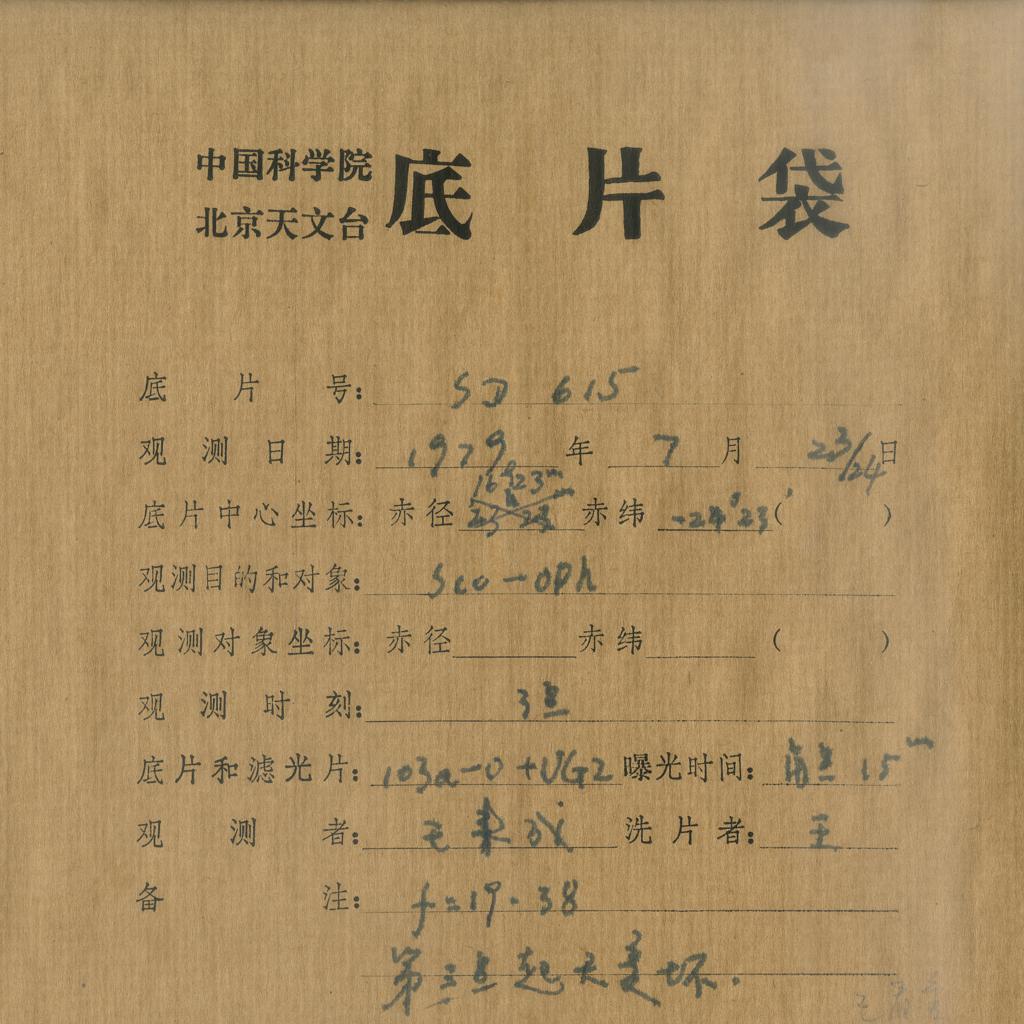 中国科学院
北京天文台
底片袋
底片号: SD 615
观测日期: 1979年 7月 23/24日
16h23m
底片中心坐标: 赤径 赤纬 -24°23′( )
观测目的和对象: Sco-Oph
观测对象坐标: 赤径 赤纬 ( )
观测时刻: 3点
底片和滤光片: 103a-O+UG2 曝光时间: 每点 15m
观测者: 王 洗片者: 王
备注: f=19.38
第三点起天变坏.